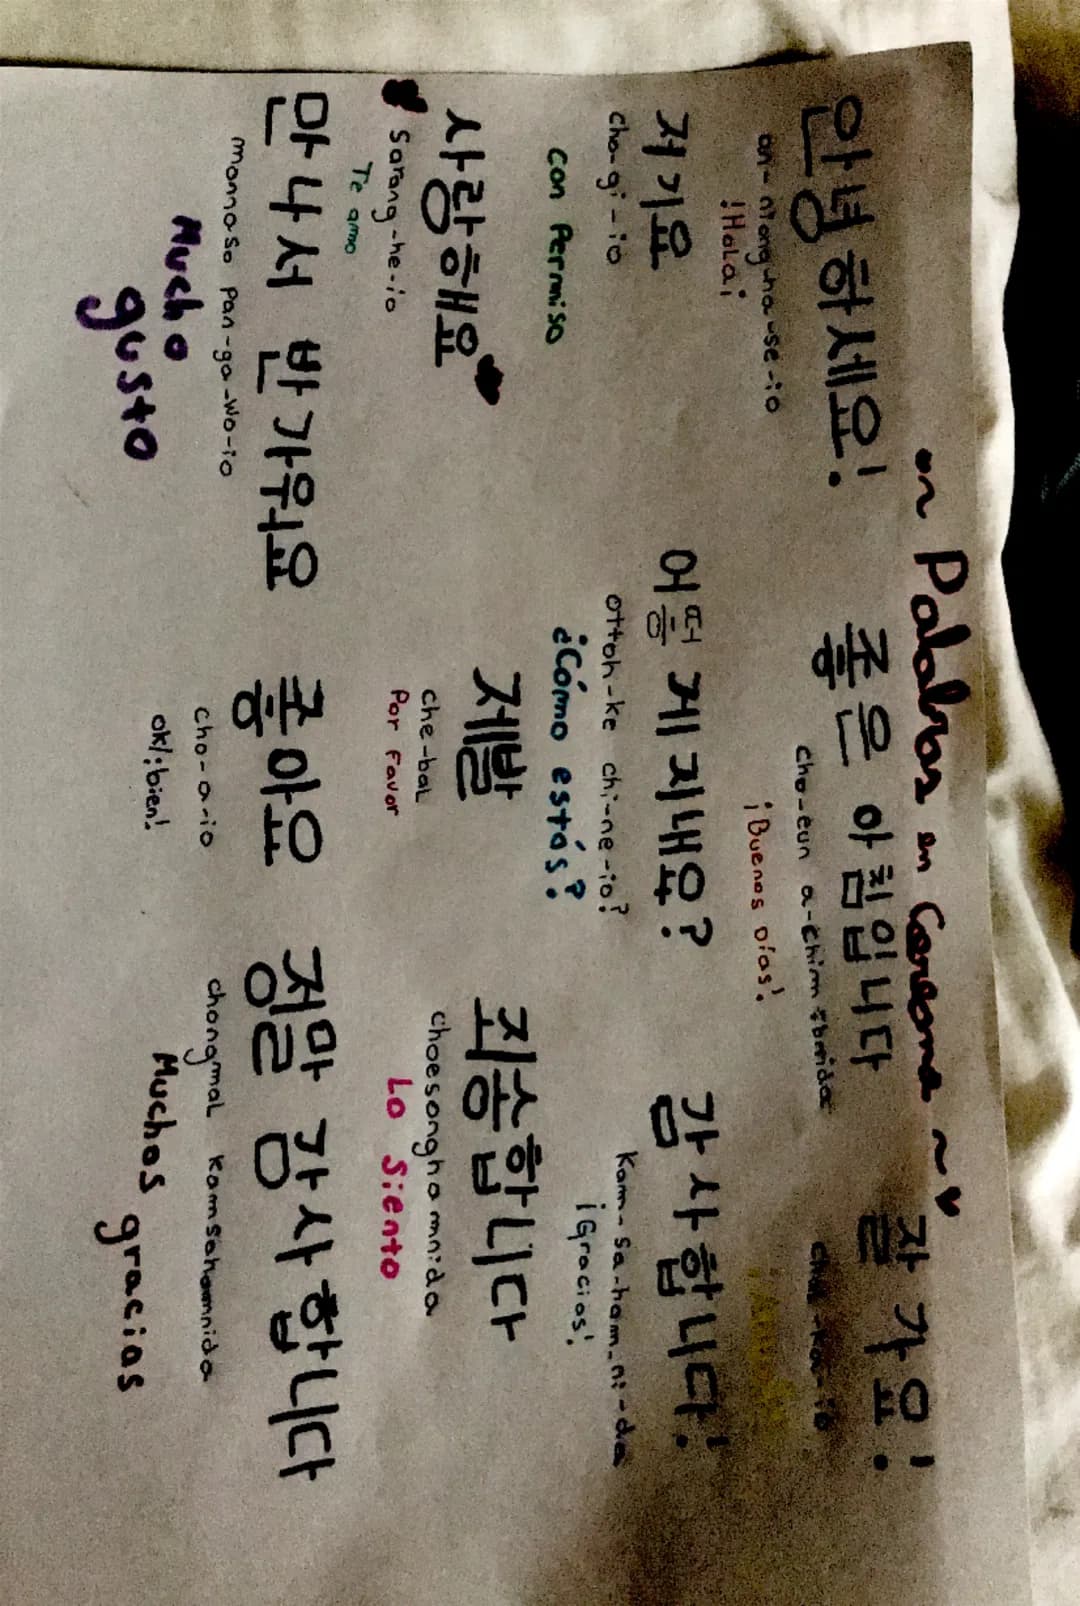 ~ Palabras en Coreano ~
안녕하세요!
an-niong-ha-se-io
¡Hola¡
좋은 아침입니다
cho-eun a-chim
¡Buenos días!
잘 가요!
chal-ka-io
저기요
cho-gi-io
con Permiso
어떻게 지내요?
ottoh-ke chi-ne-io?
¿Cómo estás?
감사합니다!
Kam-sa-ham-ni-da
¡Gracias!
사랑해요
Sarang-he-io
Te amo
제발
che-bal
Por Favor
죄송합니다
choesonghamnida
Lo Siento
만나서 반가워요
mannaso pan-ga-wo-io
Mucho gusto
좋아요
cho-a-io
ok/¡bien!
정말 감사합니다
chongmal Kamsahamnida
Muchas gracias